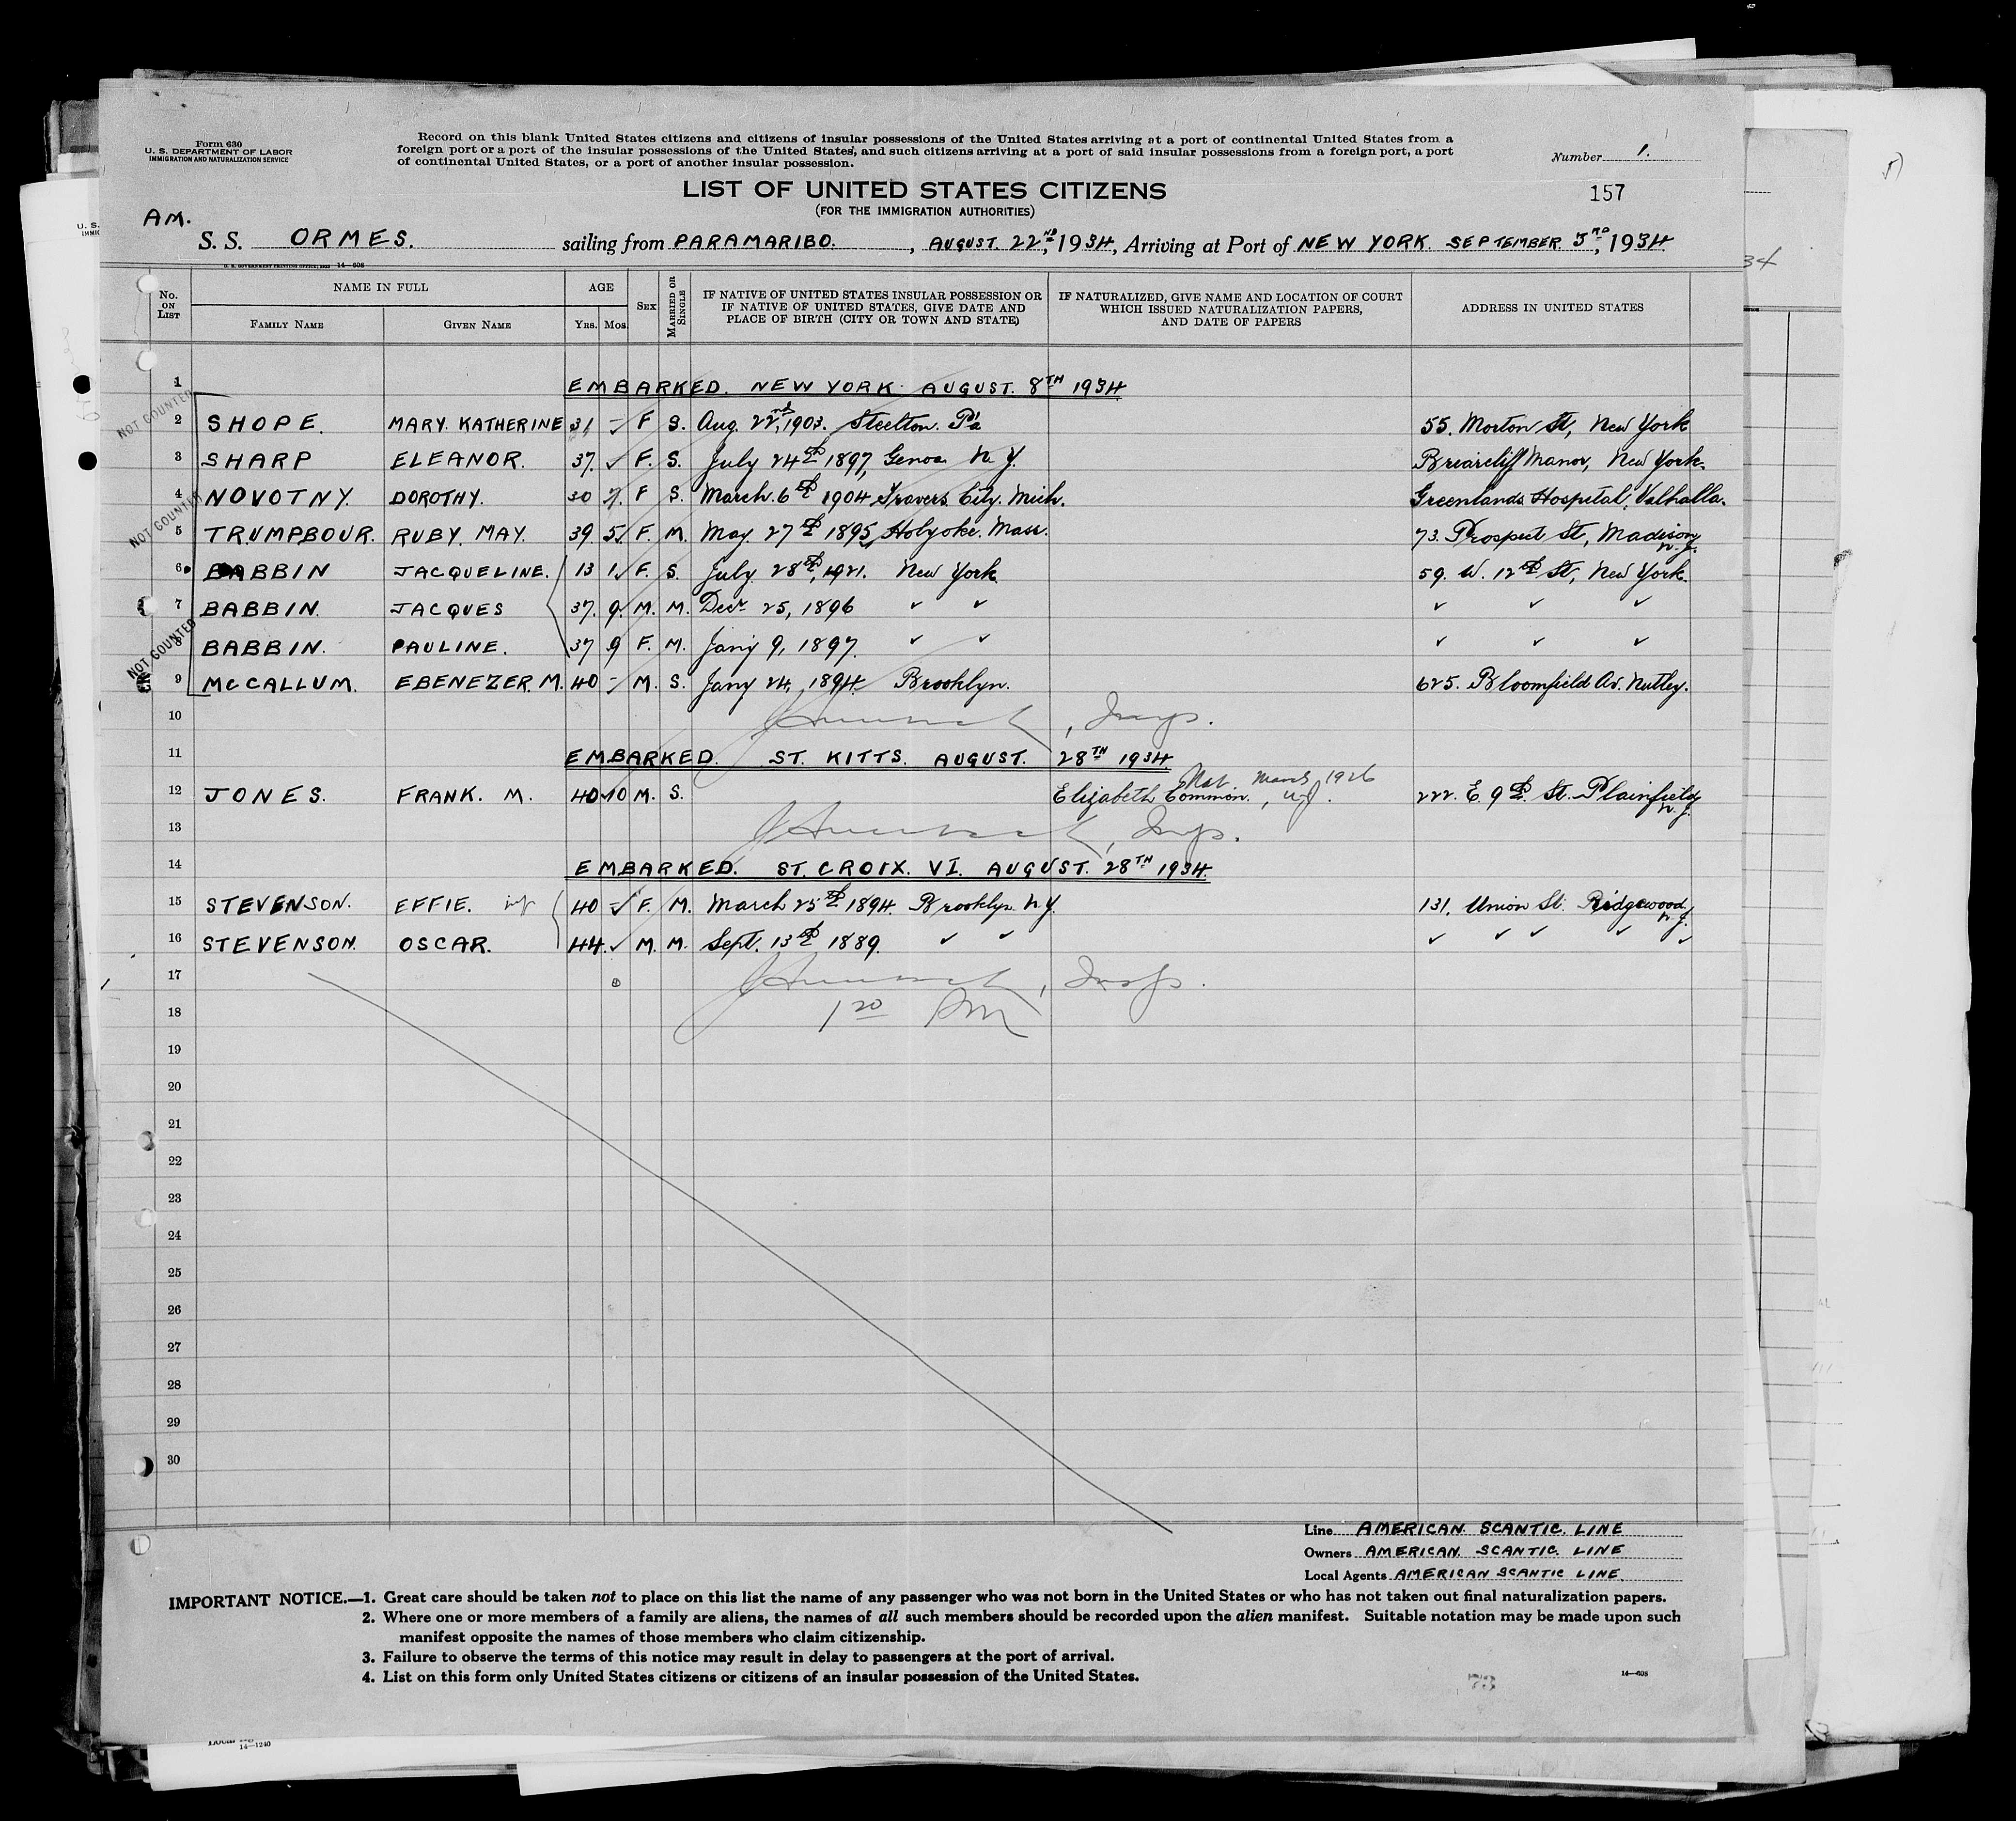 Form 630
U. S. DEPARTMENT OF LABOR
IMMIGRATION AND NATURALIZATION SERVICE
Record on this blank United States citizens and citizens of insular possessions of the United States arriving at a port of continental United States from a
foreign port or a port of the insular possessions of the United States, and such citizens arriving at a port of said insular possessions from a foreign port, a port
of continental United States, or a port of another insular possession.
Number 1.
LIST OF UNITED STATES CITIZENS
157
(FOR THE IMMIGRATION AUTHORITIES)
AM.
S. S. ORMES. sailing from PARAMARIBO. , AUGUST. 22ND, 1934, Arriving at Port of NEW YORK. SEPTEMBER. 3RD, 1934
U. S. GOVERNMENT PRINTING OFFICE: 1933 14—608
No. ON LIST
NAME IN FULL
FAMILY NAME
GIVEN NAME
AGE
YRS. MOS.
SEX
MARRIED OR SINGLE
IF NATIVE OF UNITED STATES INSULAR POSSESSION OR IF NATIVE OF UNITED STATES, GIVE DATE AND PLACE OF BIRTH (CITY OR TOWN AND STATE)
IF NATURALIZED, GIVE NAME AND LOCATION OF COURT WHICH ISSUED NATURALIZATION PAPERS, AND DATE OF PAPERS
ADDRESS IN UNITED STATES
1 EMBARKED. NEW YORK AUGUST. 8TH 1934
NOT COUNTED
2 SHOPE. MARY. KATHERINE 31 - F S. Aug. 22nd, 1903. Steelton. Pa 55. Morton St, New York
3 SHARP ELEANOR. 37. ✓ F. S. July 24th 1897, Genoa N. Y. Briarcliff Manor, New York.
4 NOVOTNY. DOROTHY. 30 F S. March. 6th 1904 Travers City. Mich. Greenlands Hospital, Valhalla.
NOT COUNTED
5 TRUMPBOUR. RUBY. MAY. 39. 5 F. M. May 27th 1895, Holyoke. Mass. 73. Prospect St, Madison N. J.
6 BABBIN JACQUELINE. 13 1 F. S. July 28th, 1921. New York 59. W. 12th St, New York.
7 BABBIN. JACQUES 37. 9. M. M. Decr 25, 1896 ✓ ✓ ✓ ✓ ✓
NOT COUNTED
8 BABBIN. PAULINE. 37 9 F. M. Jany 9, 1897. ✓ ✓ ✓ ✓ ✓
9 McCALLUM. EBENEZER. M. 40 - M. S. Jany 24, 1894 Brooklyn. 625. Bloomfield Av. Nutley.
10
11 EMBARKED. ST. KITTS. AUGUST. 28TH 1934.
Nat. March 1926
12 JONES. FRANK. M. 40 10 M. S. Elizabeth Common. , NJ. 222. E. 9th. St. Plainfield N. J.
13
14 EMBARKED. ST. CROIX. VI. AUGUST. 28TH 1934.
15 STEVENSON. EFFIE. 40 - F. M. March 25th 1894. Brooklyn N.Y. 131, Union St. Ridgewood N. J.
16 STEVENSON. OSCAR. 44. ✓ M. M. Sept. 13th 1889. ✓ ✓ ✓ ✓ ✓ ✓ ✓
17
18 1 20 PM
19
20
21
22
23
24
25
26
27
28
29
30
Line AMERICAN. SCANTIC. LINE
Owners AMERICAN. SCANTIC. LINE
Local Agents AMERICAN SCANTIC LINE.
IMPORTANT NOTICE.—1. Great care should be taken not to place on this list the name of any passenger who was not born in the United States or who has not taken out final naturalization papers.
2. Where one or more members of a family are aliens, the names of all such members should be recorded upon the alien manifest. Suitable notation may be made upon such
manifest opposite the names of those members who claim citizenship.
3. Failure to observe the terms of this notice may result in delay to passengers at the port of arrival.
4. List on this form only United States citizens or citizens of an insular possession of the United States.
73
14—608
14—1240